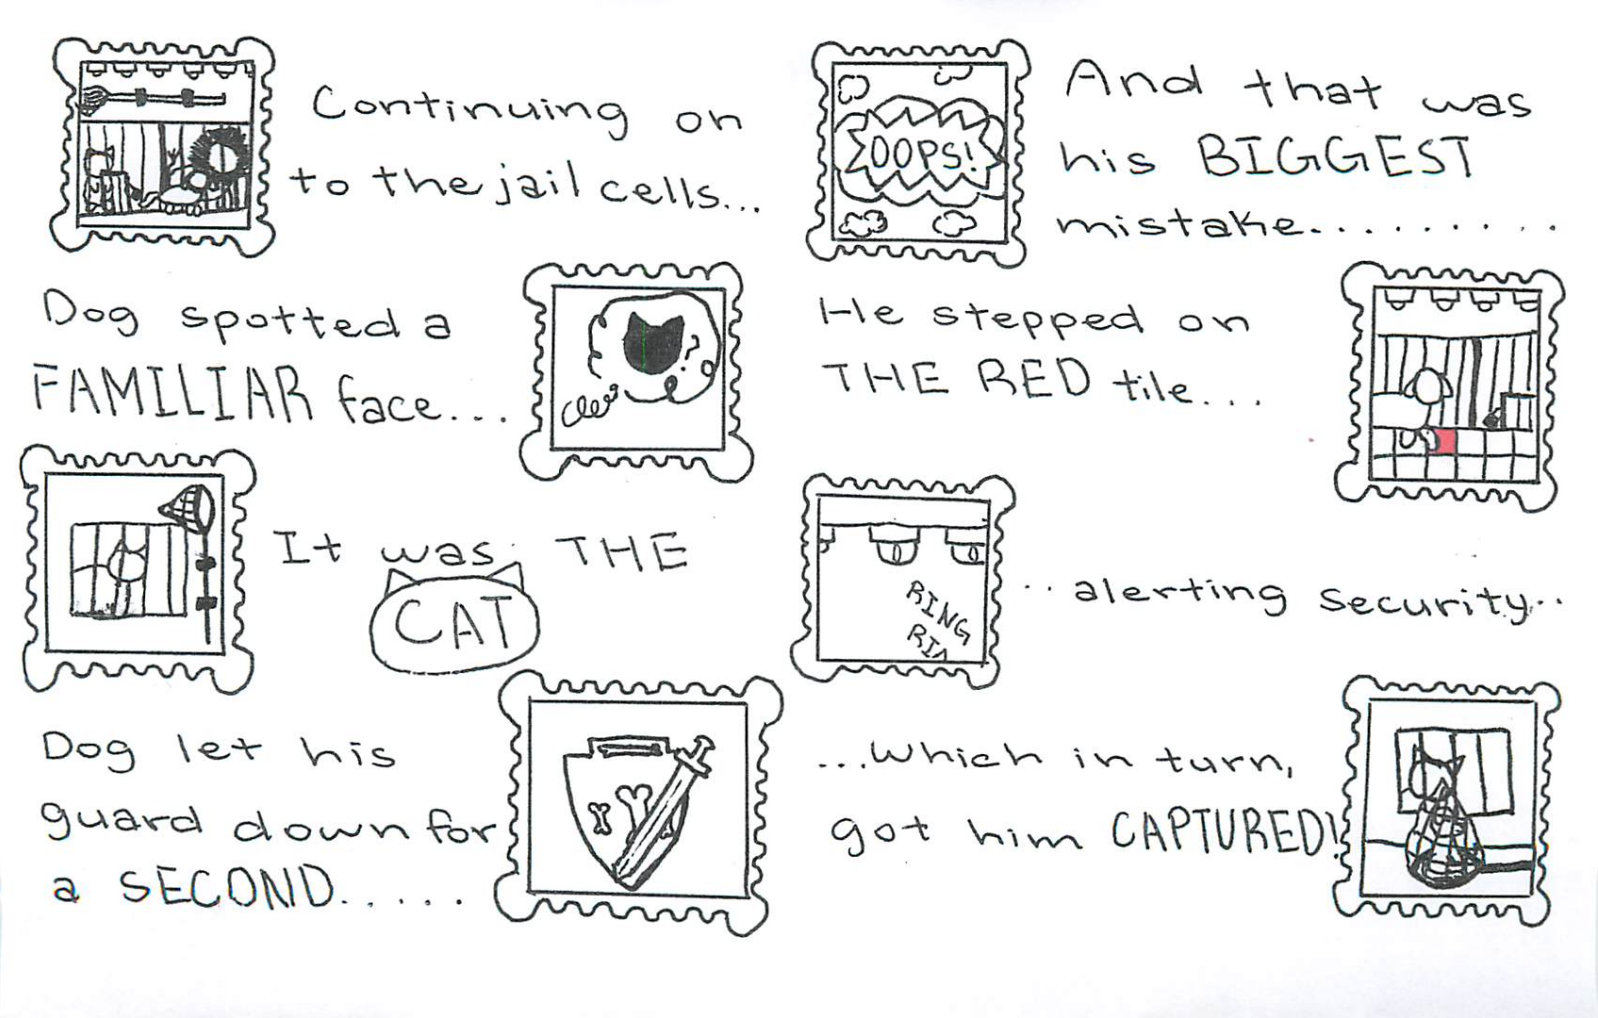 Continuing on
to the jail cells...
Dog spotted a
FAMILIAR face...
?
It was THE
CAT
Dog let his
guard down for
a SECOND.....
OOPS!
And that was
his BIGGEST
mistake..........
He stepped on
THE RED tile...
RING
RIN
..alerting security..
...which in turn,
got him CAPTURED!!